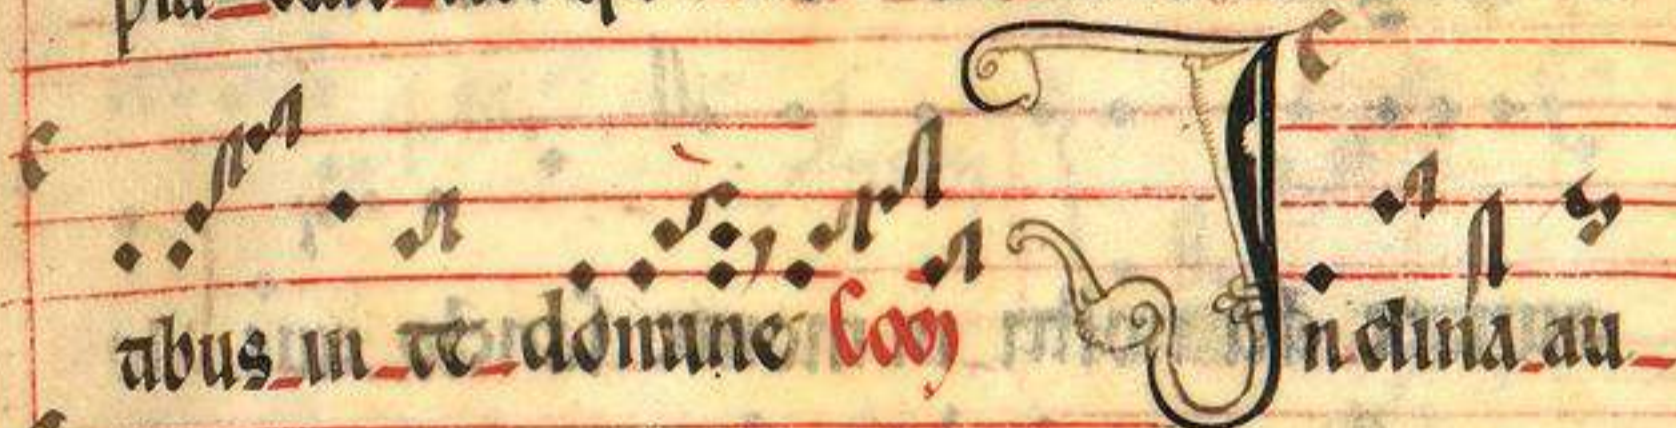 tibus in te domine Com Inclina au